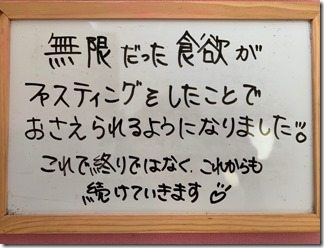 無限だった食欲が
ファスティングをしたことで
おさえられるようになりました!
これで終りではなく、これからも
続けていきます